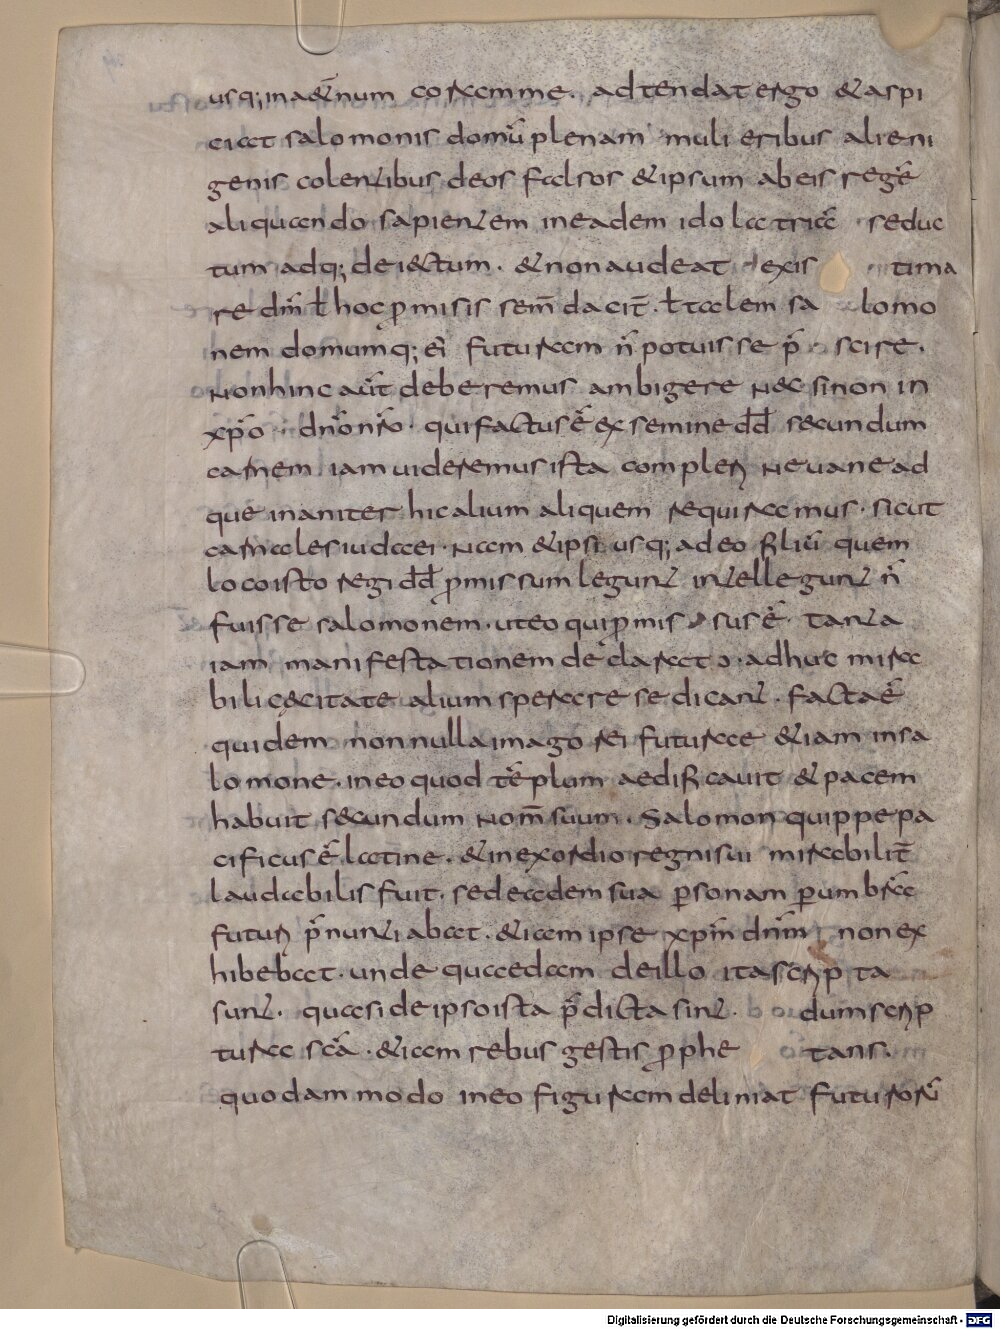 usq;inaet̄num coramme. adtendat ergo &aspi
ciat salomonis domū plenam mulieribus alieni
genis colentibus deos falsos &ipsum abeis regē
aliquando sapientem ineadem idolatriā seduc
tum adq; deiectum. &nonaudeat exis tima
re dm̄ ł hoc ꝑmisis sem̄ daciť. ł talem sa lomo
nem domumq; ei futuram n̄ potuisse p̄ scire.
Nonhinc aūt deberemus ambigere Nec sinon in
xp̄o dn̄o nr̄o. quifactusē ex semine dd̄ secundum
carnem iam uideremus ista complet Ne uane ad
que inaniter hic alium aliquem requiramus. sicut
carnales iudaei. Nam &ipsi usq; adeo filiū quem
loco isto regi dd̄ ꝑmissum legunt intellegunt n̄
fuisse salomonem. uteo quiꝑmis susē. tanta
iam manifestationem declarato. adhuc mira
bili cęcitate alium sperare se dicant. factaē
quidem nonnulla imago rei futurae &iam insa
lomone. ineo quod tēplum aedificauit & pacem
habuit secundum Nom̄ suum. Salomon quippe pa
cificusē latine. &inexordio regnisui mirabilit̄
laudabilis fuit. sed eadem sua ꝑsonam ꝑumbrā
futuri p̄nuntiabat. &iam ipse xp̄m dn̄m nonex
hibebat. unde quaedam deillo itascrip ta
sunt. quasi deipsoista p̄dicta sint. dumscrip
tura scā. &iam rebus gestis ꝓphe tans.
quodammodo ineo figuram deliniat futurorū
Digitalisierung gefördert durch die Deutsche Forschungsgemeinschaft - DFG